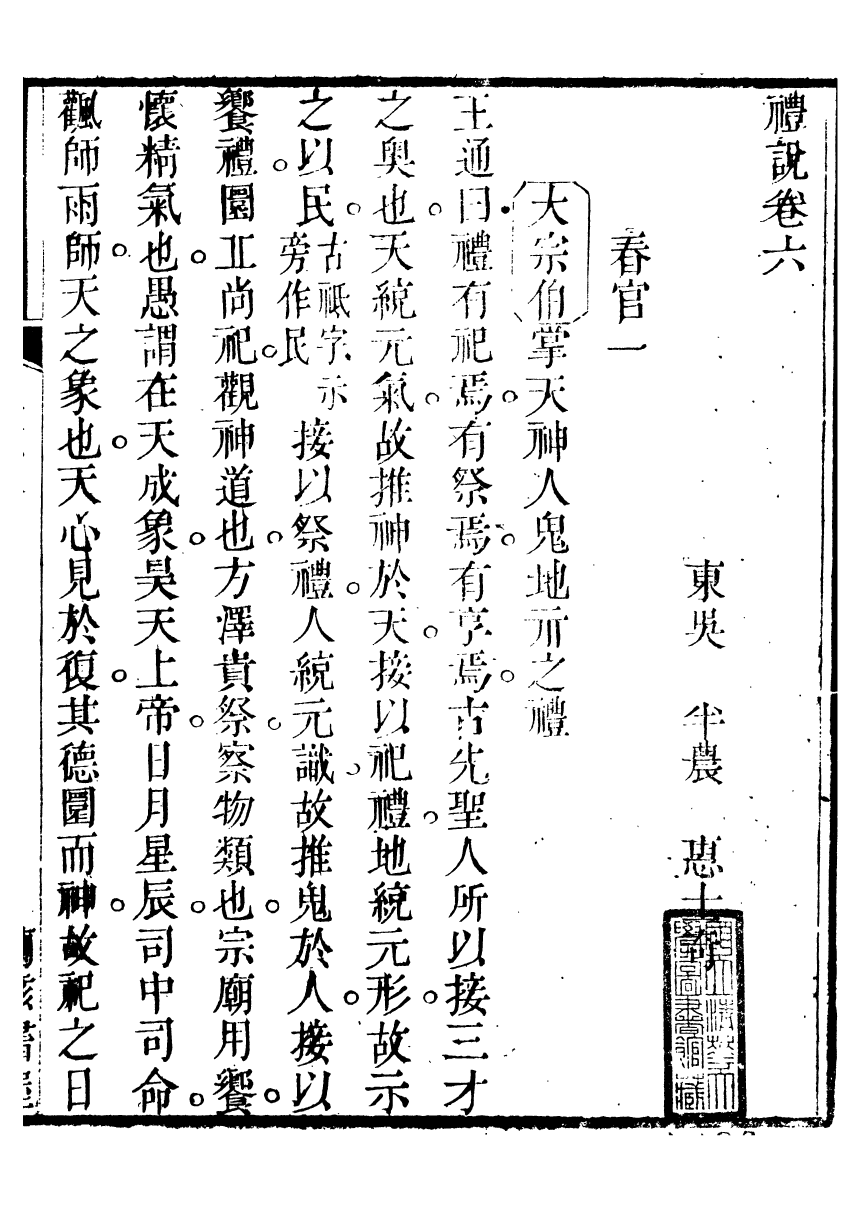 禮說卷六
東吳 半農 惠士
春官一
大宗伯掌天神人鬼地示之禮
王通曰禮有祀焉有祭焉有享焉古先聖人所以接三才
之奧也天統元氣故推神於天接以祀禮地統元形故示
之以民古祇字示旁作民接以祭禮人統元識故推鬼於人接以
饗禮圜丘尚祀觀神道也方澤貴祭察物類也宗廟用饗
懷精氣也愚謂在天成象昊天上帝日月星辰司中司命
飌師雨師天之象也天心見於復其德圓而神故祀之日